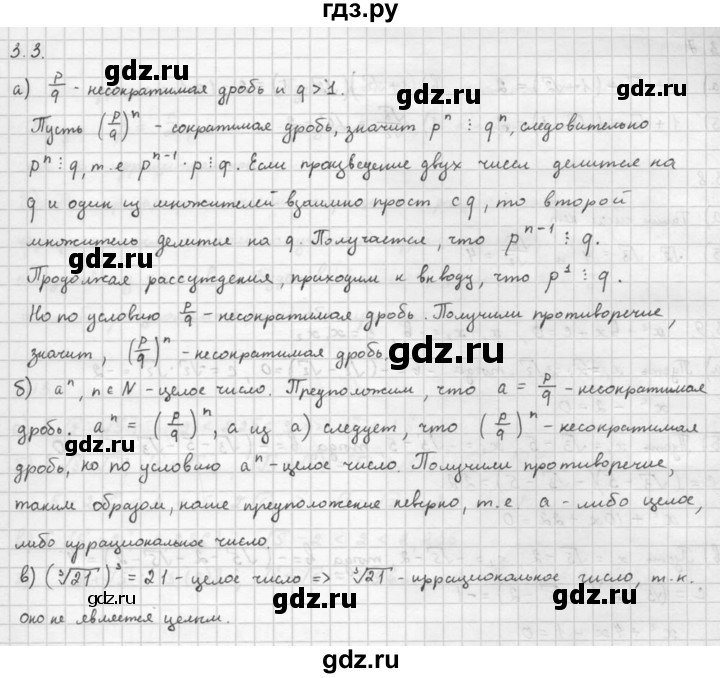 гдз.ру
3.3.
gdz.ru gdz.ru
а) p/q - несократимая дробь и q > 1.
Пусть (p/q)^n - сократимая дробь, значит p^n ⋮ q^n, следовательно
p^n ⋮ q, т.е p^(n-1) · p ⋮ q. Если произведение двух чисел делится на
q и один из множителей взаимно прост с q, то второй
gdz.ru
множитель делится на q. Получается, что p^(n-1) ⋮ q.
gdz.ru
Продолжая рассуждения, приходим к выводу, что p^1 ⋮ q.
Но по условию p/q - несократимая дробь. Получили противоречие,
значит, (p/q)^n - несократимая дробь.
gdz.ru
б) a^n, n ∈ N - целое число. Предположим, что a = p/q - несократимая
дробь. a^n = (p/q)^n, а из а) следует, что (p/q)^n - несократимая
gdz.ru
дробь, но по условию a^n - целое число. Получили противоречие,
таким образом, наше предположение неверно, т.е. a - либо целое,
gdz.ru
либо иррациональное число.
в) (∛21)^3 = 21 - целое число => ∛21 - иррациональное число, т.к.
gdz.ru gdz.ru
оно не является целым.
gdz.ru